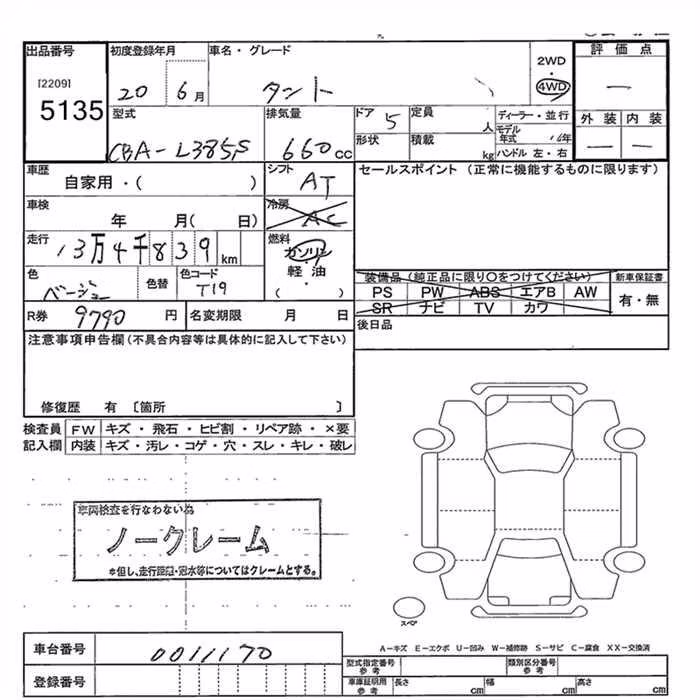 出品番号 初度登録年月 車名・グレード 評価点
[2209] 2WD
5135 20 6月 タント ・ 4WD ー
型式 排気量 ドア 5 定員 人 ディーラー・並行 外装 内装
CBA-L385S 660cc 形状 積載 kg モデル年式 年 ー ー
ハンドル 左・右
車歴 シフト セールスポイント (正常に機能するものに限ります)
自家用・( ) AT
車検 冷房
年 月( 日) AC
走行 燃料
13万4千839km ガソリン
・
軽油
( ・ )
色 色替 色コード 装備品(純正品に限り○をつけてください) 新車保証書
ベージュ T19 PS PW ABS エアB AW 有・無
R券 9790 円 名変期限 月 日 SR ナビ TV カワ
後日品
注意事項申告欄(不具合内容等は具体的に記入して下さい)
修復歴 有 〔箇所 〕
検査員 FW キズ・飛石・ヒビ割・リペア跡・×要
記入欄 内装 キズ・汚レ・コゲ・穴・スレ・キレ・破レ
車両検査を行なわない為
ノークレーム
*但し、走行距離・冠水等についてはクレームとする。
スペア
A-キズ E-エクボ U-凹み W-補修跡 S-サビ C-腐食 XX-交換済
車台番号 0011170
型式指定番号 参考 類別区分番号 参考
登録番号 車庫証明用 参考 長さ cm 幅 cm 高さ cm